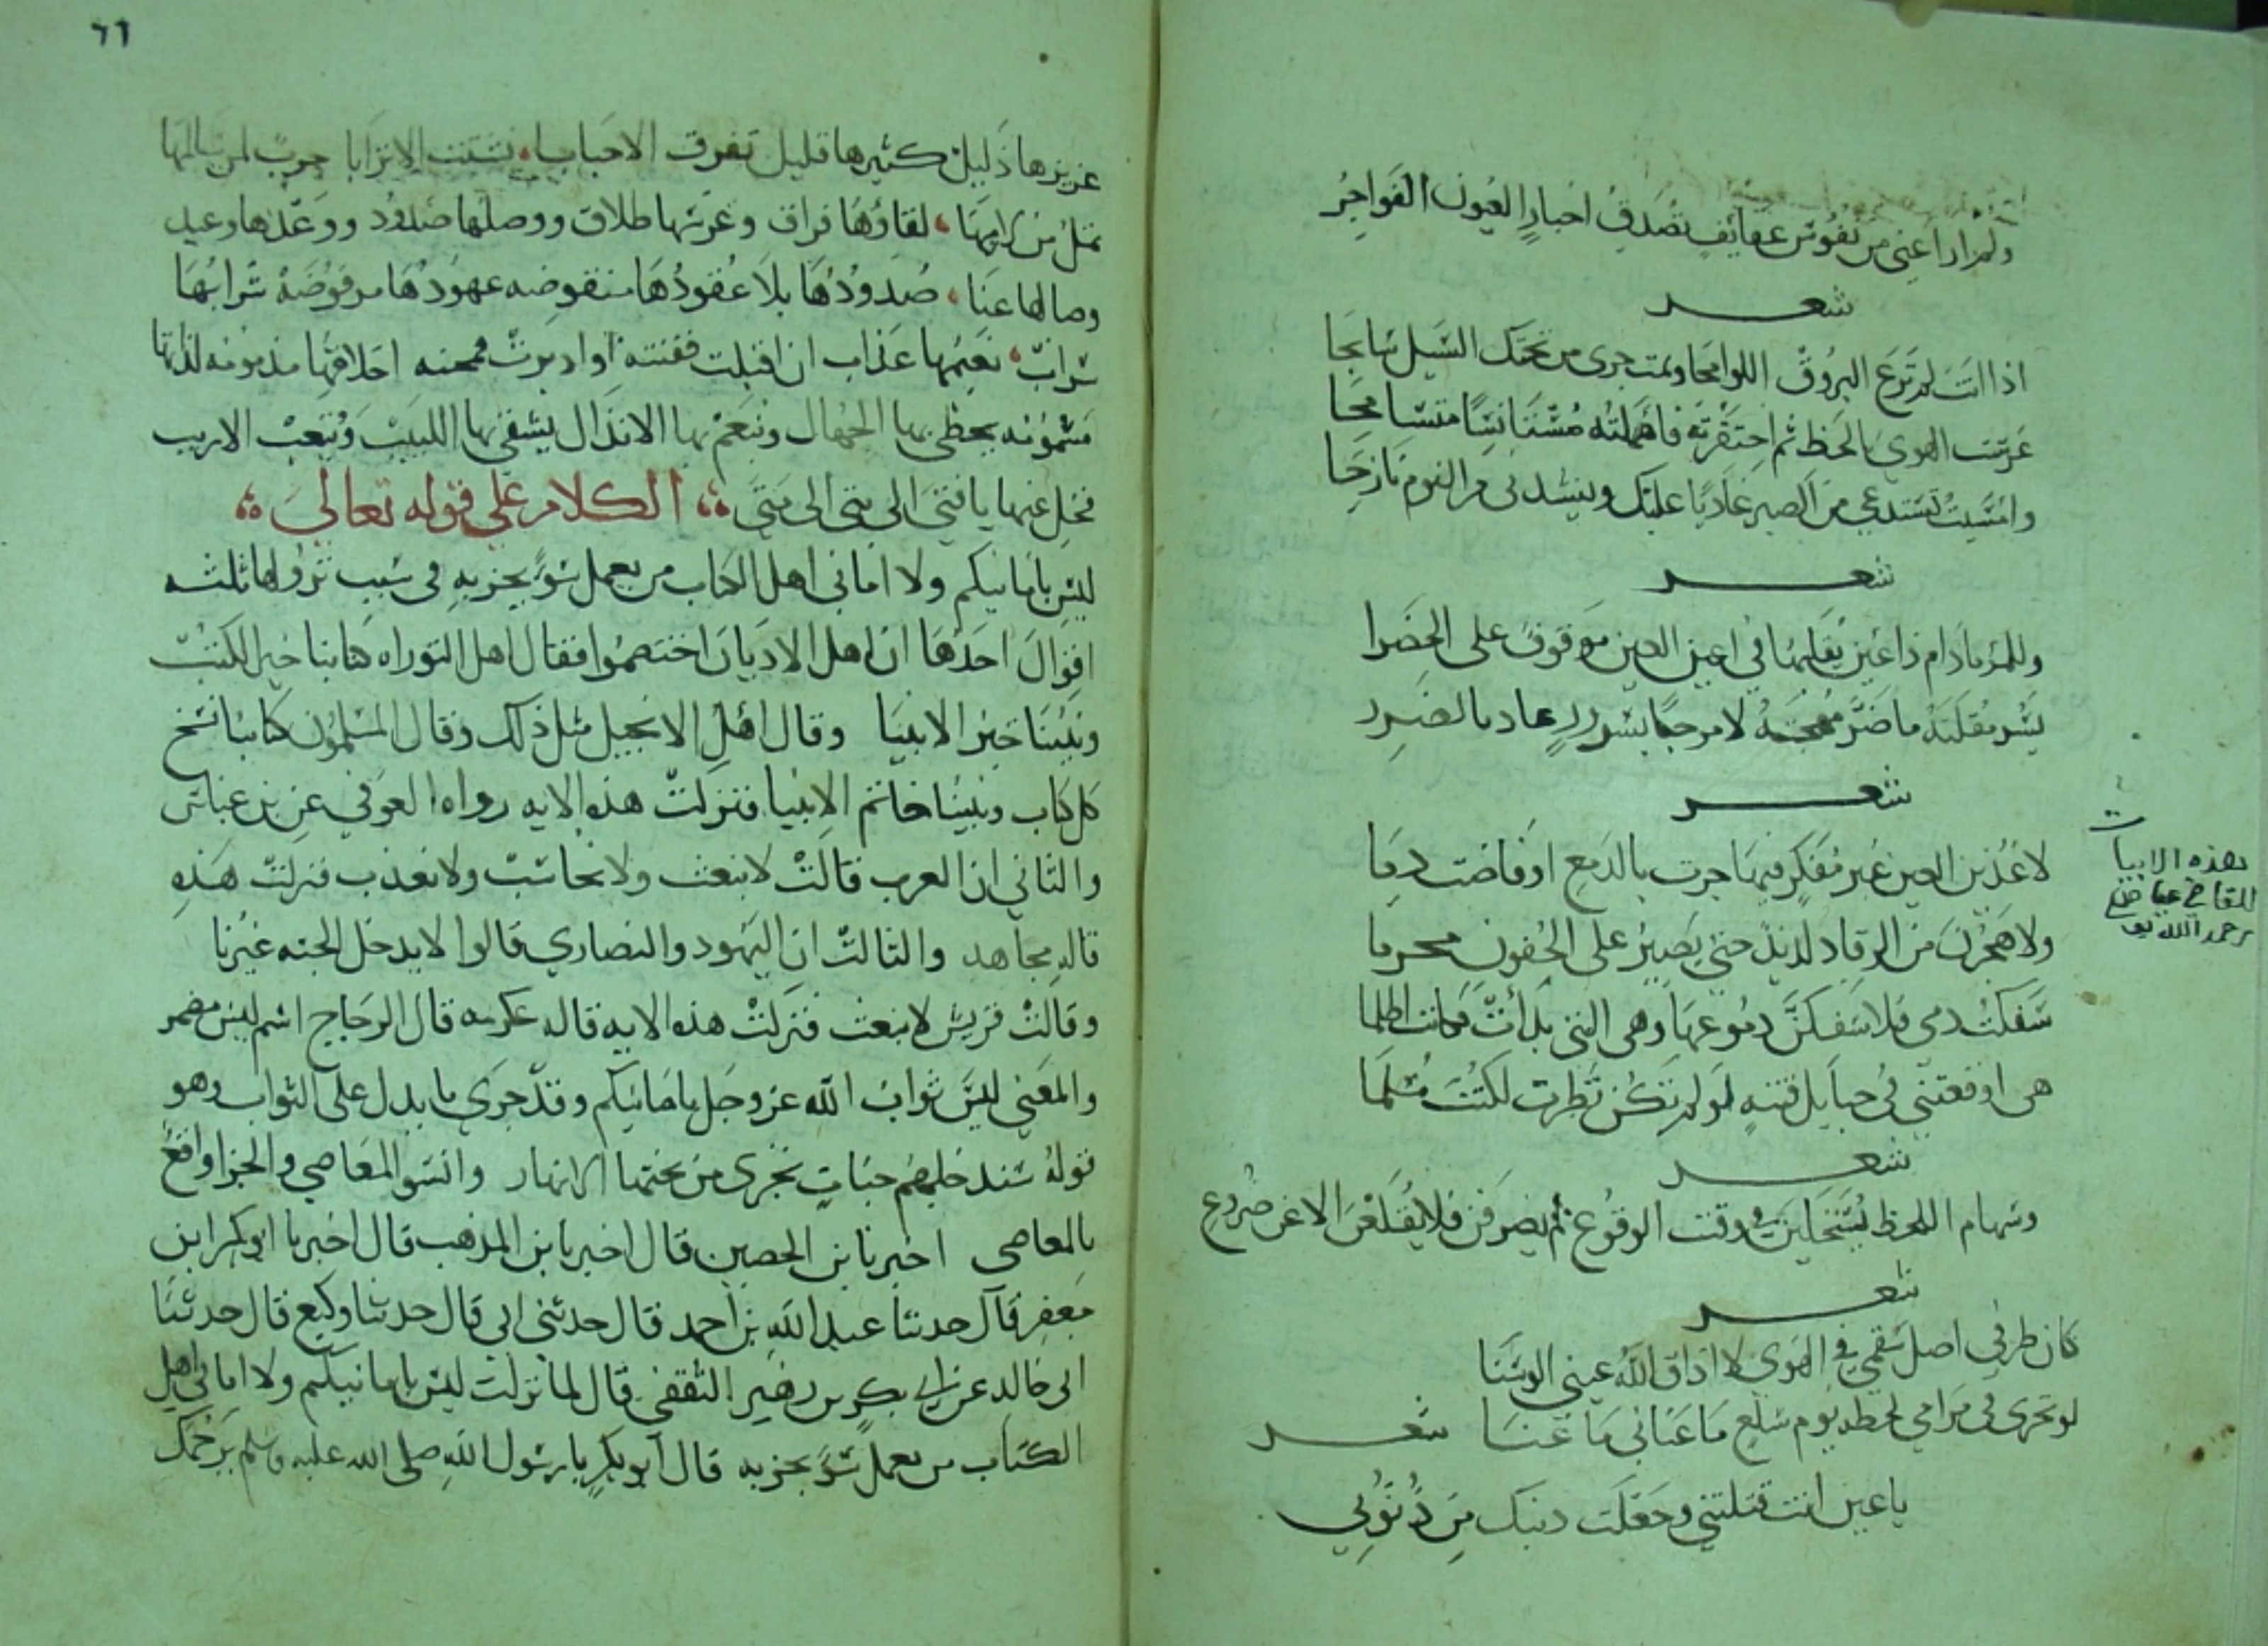 ولم ار اغبى من نفوس عفايف تصدق اخبار العيون الفواجر
شعر
اذا انت لم ترع البروق اللوامحا ونمت جرى من تحتك السيل سايحا
غرست الهوى باللحظ ثم احتقرته فاهملته مستانسا متسامحا
وامسيت تستدعي من الصبر عازبا عليك ويستدنى من النوم نازحا
شعر
وللمرء مادام ذا عين يقلبها في اعين العين موقوف على الخطرا
يسر مقلته ما ضر مهجته لا مرحبا بسرور عاد بالضرر
شعر
لاعذبن العين غير مفكر فيها جرت بالدمع او فاضت دما
ولاهجرن من الرقاد لذيذه حتى يصير على الجفون محرما
سفكت دمى فلاسفكن دموعها وهى التى بدأت فكانت اظلما
هى اوقعتني في حبايل فتنه لو لم تكن نظرت لكنت مسلما
شعر
وسهام اللحظ يستحلين في وقت الوقوع ثم يصرفن فلا يقلعن الا عن صروع
شعر
كان طرفي اصل سقمي في الهوى لا اذاق الله عيني الوسنا
لو تحرى في مرامي لحظه يوم سلع ما عناني ما عنا شعر
يا عين انت قتلتني وجعلت ذنبك من ذنوبي
هذه الابيات
للقاضي عياض
رحمه الله تع
٦٦
عزيزها ذليل كثيرها قليل تفرق الاحبابا، تشتت الاترابا حرب لمن سالمها
تمل من رامها، لقاؤها فراق وعرسها طلاق ووصلها صدود ووعدها وعيد
وصالها عنا، صدودها بلا عقودها منقوضه عهودها مرفوضة شرابها
سراب، نعيمها عذاب ان اقبلت ففتنه او ادبرت فمحنه اخلاقها مذمومه لذاتها
مسمومه يحظى بها الجهال وينعم بها الانذال يشقى بها اللبيب ويتعب الاريب
فخل عنها يا فتى الى متى الى متى، الكلام على قوله تعالى
ليس بامانيكم ولا اماني اهل الكتاب من يعمل سوءا يجز به في سبب نزولها ثلثه
اقوال احدها ان اهل الاديان اختصموا فقال اهل التوراه كتابنا خير الكتب
ونبينا خير الانبيا وقال اهل الانجيل مثل ذلك وقال المسلمون كتابنا نسخ
كل كتاب ونبينا خاتم الانبيا فنزلت هذه الايه رواه العوفي عن بن عباس
والثاني ان العرب قالت لا نبعث ولا نحاسب ولا نعذب فنزلت هذه
قاله مجاهد والثالث ان اليهود والنصارى قالوا لا يدخل الجنه غيرنا
وقالت قريش لا نبعث فنزلت هذه الايه قاله عكرمه قال الزجاج اسم ليس مضمر
والمعنى ليس ثواب الله عز وجل بامانيكم وقد جرى ما يدل على الثواب وهو
قوله سندخلهم جنات تجرى من تحتها الانهار وانسو المعاصي والجزا واقع
بالمعاصى اخبرنا بن الحصين قال اخبرنا بن المذهب قال اخبرنا ابو بكر ابن
جعفر قال حدثنا عبد الله بن احمد قال حدثني ابى قال حدثنا وكيع قال حدثنا
ابى خالد عن ابى بكر بن زهير الثقفي قال لما نزلت ليس بامانيكم ولا اماني اهل
الكتاب من يعمل سوءا يجز به قال ابو بكر يا رسول الله صلى الله عليه وسلم يرحمك